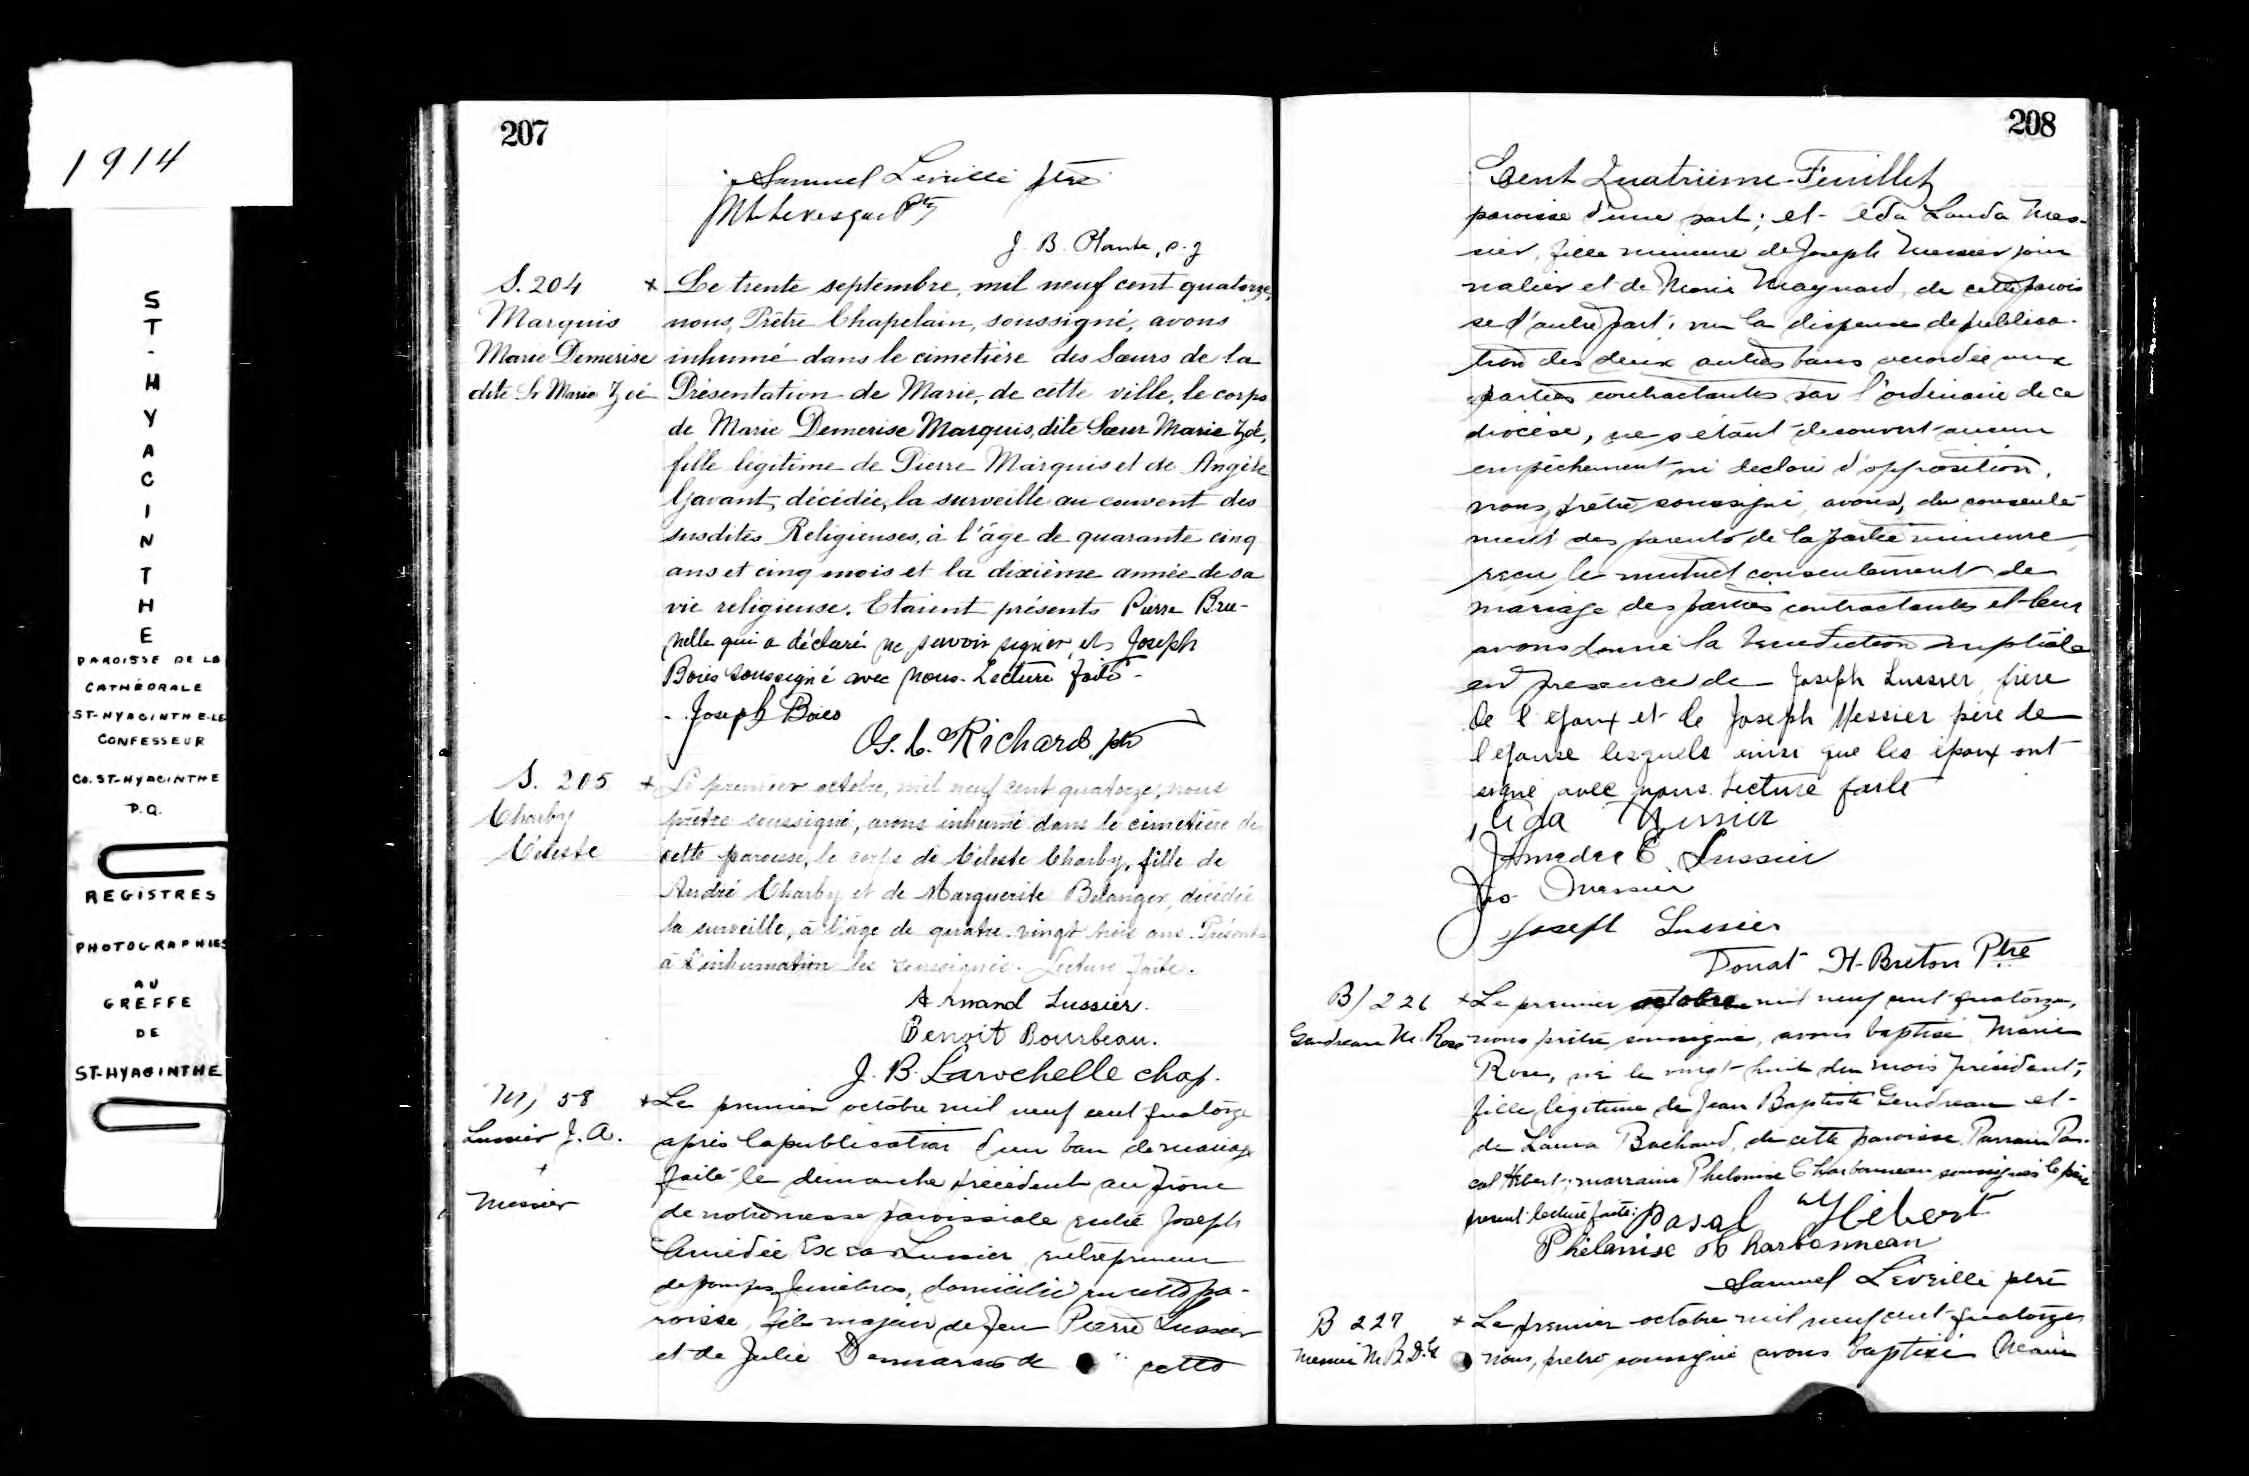 1914
ST-HYACINTHE
PAROISSE DE LA
CATHÉDRALE
ST-HYACINTHE-LE
CONFESSEUR
CO. ST-HYACINTHE
P.Q.
REGISTRES
PHOTOGRAPHIES
AU
GREFFE
DE
ST-HYACINTHE
207
Samuel Léveillé ptre
J. B. Plante, s. j
S. 204
Marquis
Marie Demerise
dite Sr Marie Zoé
+ Le trente septembre, mil neuf cent quatorze,
nous, Prêtre Chapelain, soussigné, avons
inhumé dans le cimetière des Sœurs de la
Présentation de Marie, de cette ville, le corps
de Marie Demerise Marquis, dite Sœur Marie Zoé,
fille légitime de Pierre Marquis et de Angèle
Gavant, décédée, la surveille au couvent des
susdites Religieuses, à l'âge de quarante cinq
ans et cinq mois et la dixième année de sa
vie religieuse. Etaient présents Pierre Bru-
nelle qui a déclaré ne savoir signer, et Joseph
Boies soussigné avec nous. Lecture faite -
Joseph Boies
Richard, ptr
S. 205
Charby
Céleste
+ Le premier octobre, mil neuf cent quatorze, nous
prêtre soussigné, avons inhumé dans le cimetière de
cette paroisse, le corps de Céleste Charby, fille de
André Charby et de Marguerite Bélanger, décédée
la surveille, à l'âge de quatre-vingt trois ans. Présents
à l'inhumation les soussignés. Lecture faite.
Armand Lussier.
Benoit Bourbeau.
J. B. Larochelle chap.
M, 58
Lussier J. A.
+
Messier
+ Le premier octobre mil neuf cent quatorze
après la publication d'un ban de mariage
faite le dimanche précédent au prône
de notre messe paroissiale entre Joseph
Amédée Lussier entrepreneur
de pompes funèbres, domicilié en cette pa-
roisse, fils majeur de feu Pierre Lussier
et de Julie Demarais de cette
208
Cent Quatrieme Feuillet
paroisse d'une part; et Eda Landa Mes-
sier, fille mineure de Joseph Messier jour
nalier et de Marie Maynard, de cette parois
se d'autre part; vu la dispense de publica-
tion des deux autres bans accordée aux
parties contractantes par l'ordinaire de ce
diocèse, ne s'étant découvert aucun
empêchement ni déclaré d'opposition,
nous, prêtre soussigné, avons, du consente-
ment des parents de la partie mineure,
reçu le mutuel consentement de
mariage des parties contractantes et leur
avons donné la bénédiction nuptiale
en présence de Joseph Lussier frère
de l'époux et de Joseph Messier père de
l'épouse lesquels ainsi que les époux ont
signé avec nous. Lecture faite
Eda Messier
Amédée E. Lussier
Jos. Messier
Joseph Lussier
Donat H-Breton Ptre
B/ 226
Gendreau M. Rose
+ Le premier octobre mil neuf cent quatorze,
nous prêtre soussigné, avons baptisé Marie
Rose, née le vingt-huit du mois précédent,
fille légitime de Jean Baptiste Gendreau et
de Laura Bachand, de cette paroisse. Parrain Pas-
cal Hébert; marraine Phelonise Charbonneau soussignés le père
présent. lecture faite: Pasal Hébert
Phélanise Charbonneau
Samuel Léveillé ptre
B 227
+ Le premier octobre mil neuf cent quatorze
nous, prêtre soussigné avons baptisé Marie